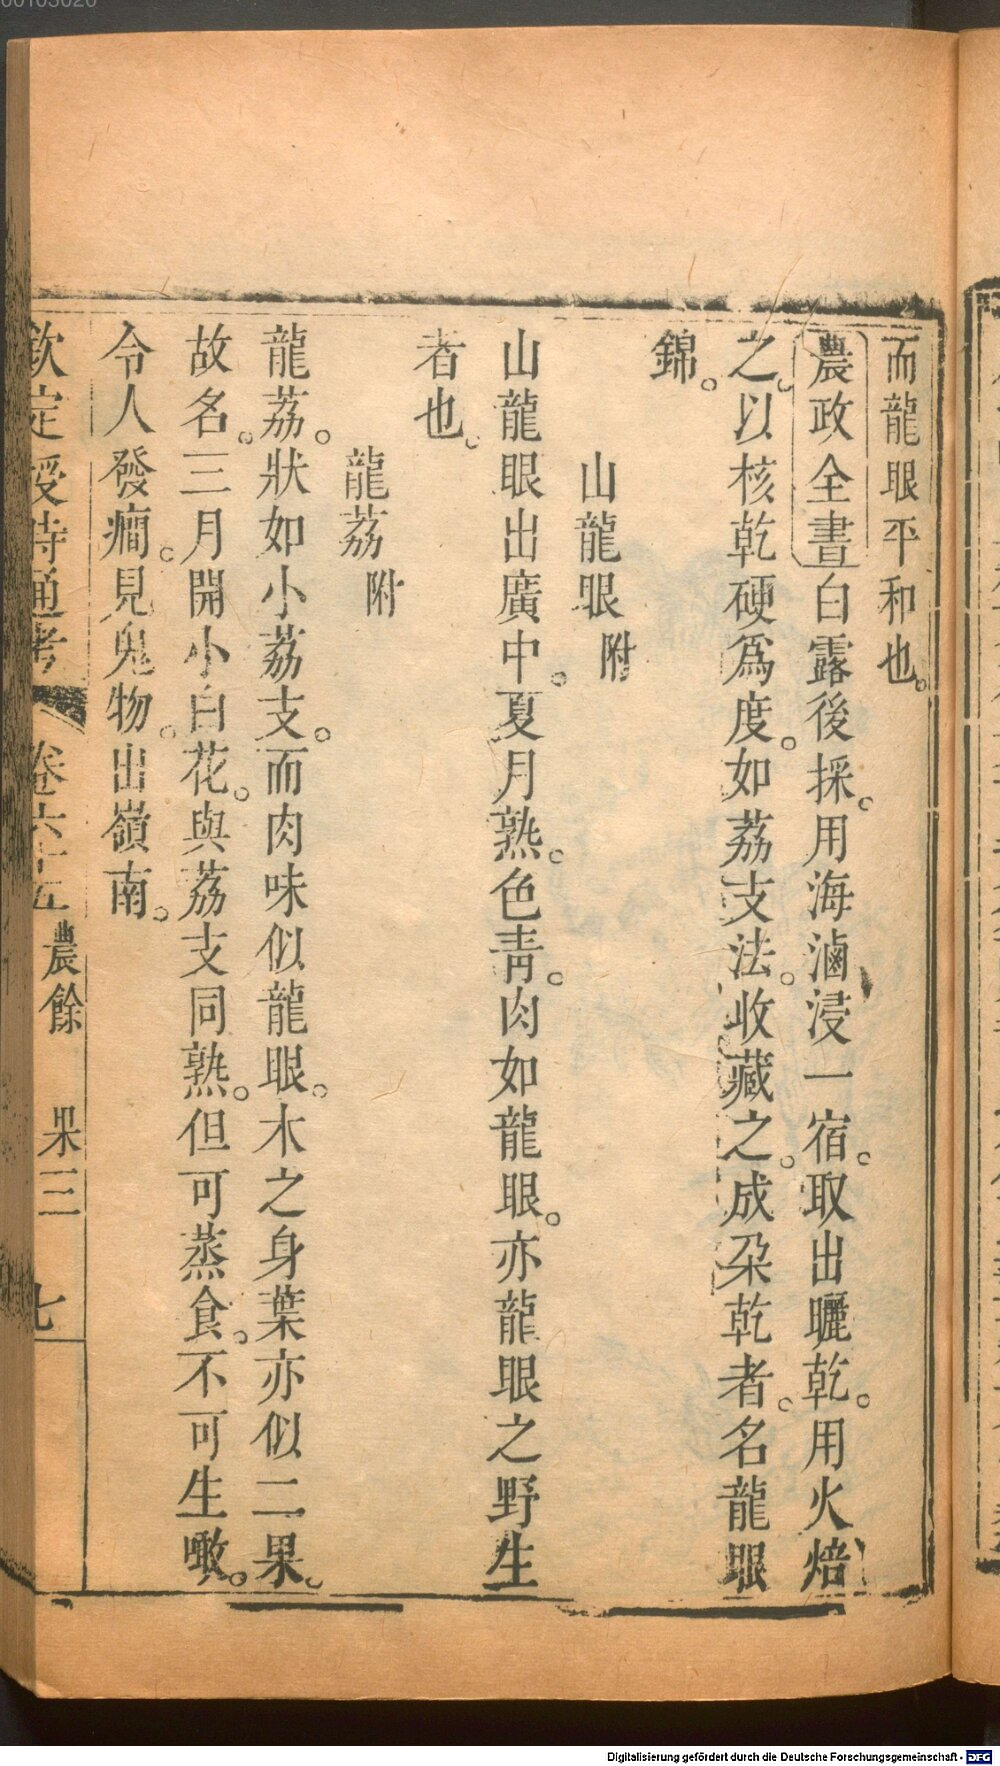 而龍眼平和也。
農政全書白露後採。用海滷浸一宿。取出曬乾。用火焙
之。以核乾硬爲度。如荔支法。收藏之。成朶乾者。名龍眼
錦。
山龍眼附
山龍眼出廣中。夏月熟。色靑。肉如龍眼。亦龍眼之野生
者也。
龍荔附
龍荔。狀如小荔支。而肉味似龍眼。木之身葉亦似二果。
故名。三月開小白花。與荔支同熟。但可蒸食。不可生噉。
令人發癎。見鬼物。出嶺南。
欽定授時通考 卷六十五 農餘 果三 七
Digitalisierung gefördert durch die Deutsche Forschungsgemeinschaft - DFG